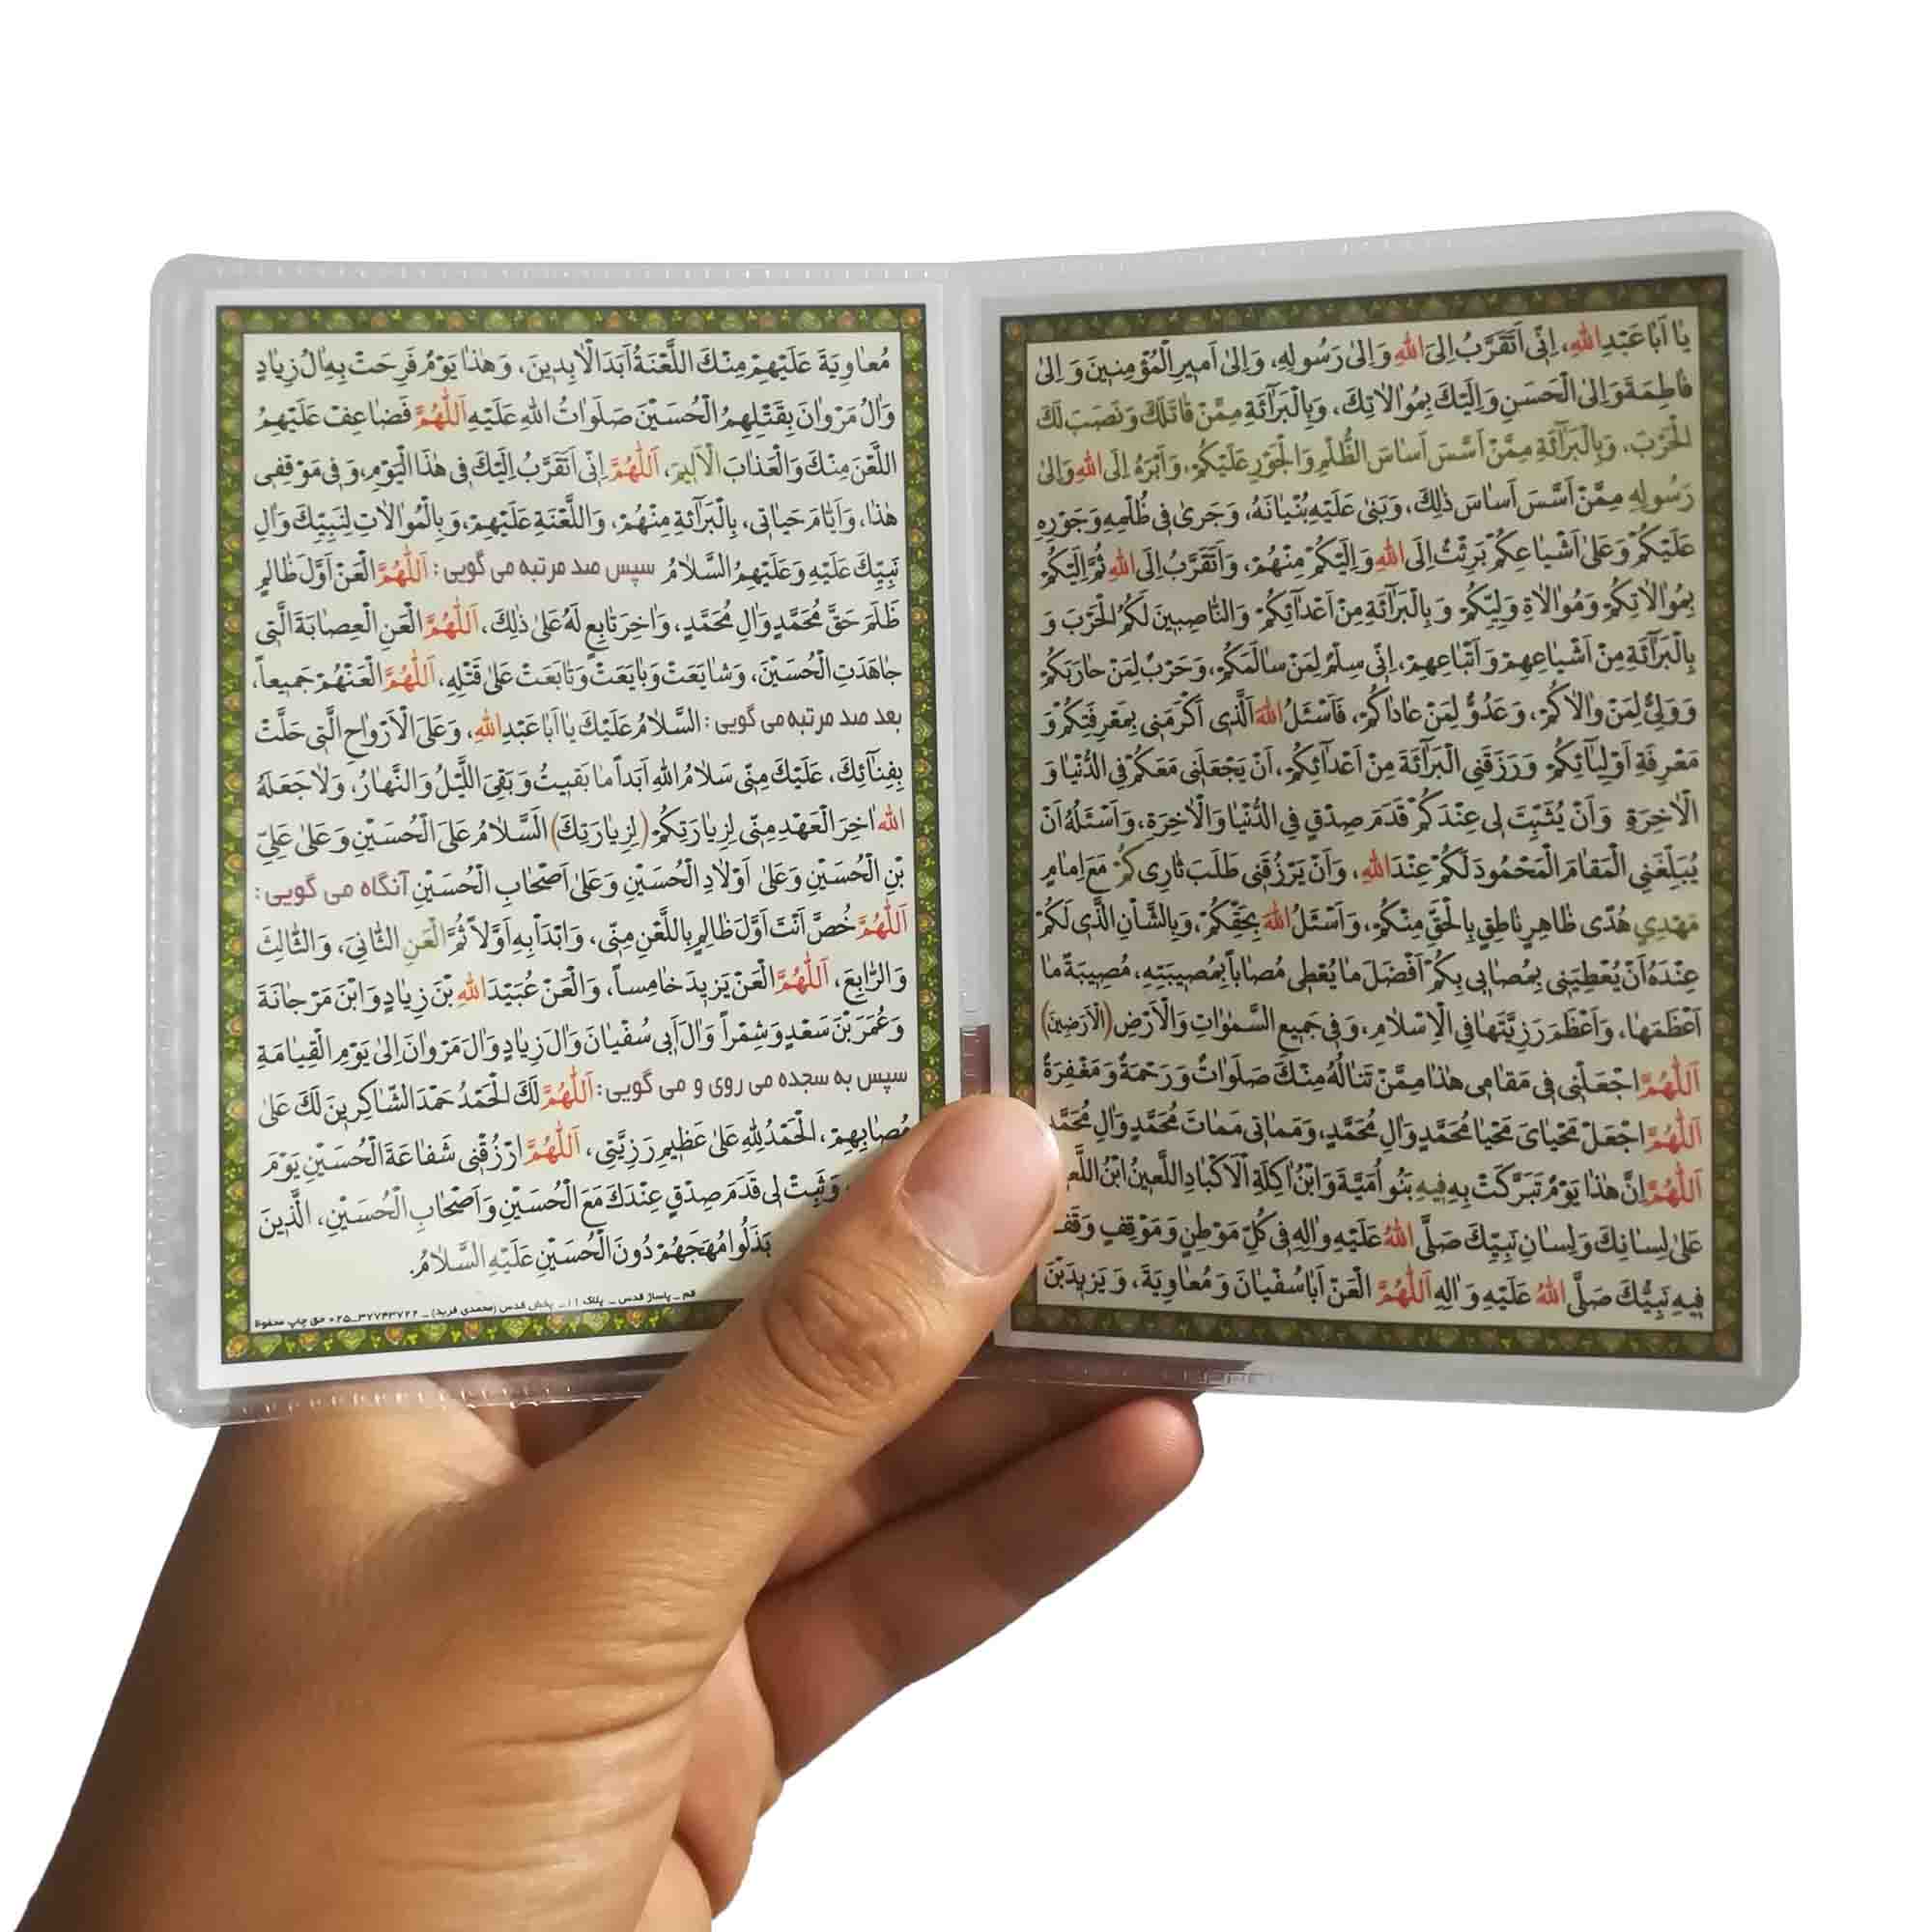 يٰا اَبٰا عَبْدِ اللهِ، اِنّى اَتَقَرَّبُ اِلىَ اللهِ وَ اِلىٰ رَسُولِهِ، وَ اِلىٰ اَميرِ الْمُؤْمِنينَ وَ اِلىٰ
فٰاطِمَةَ وَ اِلىَ الْحَسَنِ وَ اِلَيْكَ بِمُوٰالاٰتِكَ، وَ بِالْبَرٰآئَةِ مِمَّنْ قٰاتَلَكَ وَ نَصَبَ لَكَ
الْحَرْبَ، وَ بِالْبَرٰآئَةِ مِمَّنْ اَسَّسَ اَسٰاسَ الظُّلْمِ وَ الْجَوْرِ عَلَيْكُمْ، وَ اَبْرَءُ اِلَى اللهِ وَ اِلىٰ
رَسُولِهِ مِمَّنْ اَسَّسَ اَسٰاسَ ذٰلِكَ، وَ بَنىٰ عَلَيْهِ بُنْيٰانَهُ، وَ جَرىٰ فى ظُلْمِهِ وَ جَوْرِهِ
عَلَيْكُمْ وَ عَلىٰ اَشْيٰاعِكُمْ بَرِئْتُ اِلَى اللهِ وَ اِلَيْكُمْ مِنْهُمْ، وَ اَتَقَرَّبُ اِلَى اللهِ ثُمَّ اِلَيْكُمْ
بِمُوٰالاٰتِكُمْ وَ مُوٰالاٰةِ وَلِيِّكُمْ وَ بِالْبَرٰآئَةِ مِنْ اَعْدٰآئِكُمْ وَ النّٰاصِبينَ لَكُمُ الْحَرْبَ وَ
بِالْبَرٰآئَةِ مِنْ اَشْيٰاعِهِمْ وَ اَتْبٰاعِهِمْ، اِنّى سِلْمٌ لِمَنْ سٰالَمَكُمْ، وَ حَرْبٌ لِمَنْ حٰارَبَكُمْ
وَ وَلِىٌّ لِمَنْ وٰالاٰكُمْ، وَ عَدُوٌّ لِمَنْ عٰادٰاكُمْ، فَاَسْئَلُ اللهَ الَّذى اَكْرَمَنى بِمَعْرِفَتِكُمْ وَ
مَعْرِفَةِ اَوْلِيٰآئِكُمْ وَ رَزَقَنِى الْبَرٰآئَةَ مِنْ اَعْدٰآئِكُمْ، اَنْ يَجْعَلَنى مَعَكُمْ فِى الدُّنْيٰا وَ
الْاٰخِرَةِ وَ اَنْ يُثَبِّتَ لى عِنْدَكُمْ قَدَمَ صِدْقٍ فِى الدُّنْيٰا وَ الْاٰخِرَةِ، وَ اَسْئَلُهُ اَنْ
يُبَلِّغَنِى الْمَقٰامَ الْمَحْمُودَ لَكُمْ عِنْدَ اللهِ، وَ اَنْ يَرْزُقَنى طَلَبَ ثٰارى كُمْ مَعَ اِمٰامٍ
مَهْدِيٍ هُدًى ظٰاهِرٍ نٰاطِقٍ بِالْحَقِّ مِنْكُمْ، وَ اَسْئَلُ اللهَ بِحَقِّكُمْ، وَ بِالشَّأْنِ الَّذى لَكُمْ
عِنْدَهُ اَنْ يُعْطِيَنى بِمُصٰابى بِكُمْ اَفْضَلَ مٰا يُعْطى مُصٰاباً بِمُصيبَتِهِ، مُصيبَةً مٰا
اَعْظَمَهٰا، وَ اَعْظَمَ رَزِيَّتَهٰا فِى الْاِسْلاٰمِ، وَ فى جَميعِ السَّمٰوٰاتِ وَ الْاَرْضِ (الْاَرَضينَ)
اَللّٰهُمَّ اجْعَلْنى فى مَقٰامى هٰذٰا مِمَّنْ تَنٰالُهُ مِنْكَ صَلَوٰاتٌ وَ رَحْمَةٌ وَ مَغْفِرَةٌ
اَللّٰهُمَّ اجْعَلْ مَحْيٰاىَ مَحْيٰا مُحَمَّدٍ وَ اٰلِ مُحَمَّدٍ، وَ مَمٰاتى مَمٰاتَ مُحَمَّدٍ وَ اٰلِ مُحَمَّدٍ
اَللّٰهُمَّ اِنَّ هٰذٰا يَوْمٌ تَبَرَّكَتْ بِهِ فيهِ بَنُو اُمَيَّةَ وَ ابْنُ اٰكِلَةِ الْاَكْبٰادِ اللَّعينُ ابْنُ
عَلىٰ لِسٰانِكَ وَ لِسٰانِ نَبِيِّكَ صَلَّى اللهُ عَلَيْهِ وَ اٰلِهِ فى كُلِّ مَوْطِنٍ وَ مَوْقِفٍ وَقَفَ
فيهِ نَبِيُّكَ صَلَّى اللهُ عَلَيْهِ وَ اٰلِهِ اَللّٰهُمَّ الْعَنْ اَبٰاسُفْيٰانَ وَ مُعٰاوِيَةَ، وَ يَزيدَ بْنَ
مُعٰاوِيَةَ عَلَيْهِمْ مِنْكَ اللَّعْنَةُ اَبَدَ الْاٰبِدينَ، وَ هٰذٰا يَوْمٌ فَرِحَتْ بِهِ اٰلُ زِيٰادٍ
وَ اٰلُ مَرْوٰانَ بِقَتْلِهِمُ الْحُسَيْنَ صَلَوٰاتُ اللهِ عَلَيْهِ اَللّٰهُمَّ فَضٰاعِفْ عَلَيْهِمُ
اللَّعْنَ مِنْكَ وَ الْعَذٰابَ الْاَليمَ، اَللّٰهُمَّ اِنّى اَتَقَرَّبُ اِلَيْكَ فى هٰذَا الْيَوْمِ، وَ فى مَوْقِفى
هٰذٰا، وَ اَيّٰامَ حَيٰاتى، بِالْبَرٰآئَةِ مِنْهُمْ، وَ اللَّعْنَةِ عَلَيْهِمْ، وَ بِالْمُوٰالاٰتِ لِنَبِيِّكَ وَ اٰلِ
نَبِيِّكَ عَلَيْهِ وَ عَلَيْهِمُ السَّلاٰمُ سپس صد مرتبه می گویی: اَللّٰهُمَّ الْعَنْ اَوَّلَ ظٰالِمٍ
ظَلَمَ حَقَّ مُحَمَّدٍ وَ اٰلِ مُحَمَّدٍ، وَ اٰخِرَ تٰابِعٍ لَهُ عَلىٰ ذٰلِكَ، اَللّٰهُمَّ الْعَنِ الْعِصٰابَةَ الَّتى
جٰاهَدَتِ الْحُسَيْنَ، وَ شٰايَعَتْ وَ بٰايَعَتْ وَ تٰابَعَتْ عَلىٰ قَتْلِهِ، اَللّٰهُمَّ الْعَنْهُمْ جَميعاً،
بعد صد مرتبه می گویی: السَّلاٰمُ عَلَيْكَ يٰا اَبٰا عَبْدِ اللهِ، وَ عَلَى الْاَرْوٰاحِ الَّتى حَلَّتْ
بِفِنٰآئِكَ، عَلَيْكَ مِنّى سَلاٰمُ اللهِ اَبَداً مٰا بَقيتُ وَ بَقِىَ اللَّيْلُ وَ النَّهٰارُ، وَ لاٰ جَعَلَهُ
اللهُ اٰخِرَ الْعَهْدِ مِنّى لِزِيٰارَتِكُمْ (لِزِيٰارَتِكَ) اَلسَّلاٰمُ عَلَى الْحُسَيْنِ وَ عَلىٰ عَلِىِّ
بْنِ الْحُسَيْنِ وَ عَلىٰ اَوْلاٰدِ الْحُسَيْنِ وَ عَلىٰ اَصْحٰابِ الْحُسَيْنِ آنگاه می گویی:
اَللّٰهُمَّ خُصَّ اَنْتَ اَوَّلَ ظٰالِمٍ بِاللَّعْنِ مِنّى، وَ ابْدَأْ بِهِ اَوَّلاً ثُمَّ الْعَنِ الثّٰانِىَ، وَ الثّٰالِثَ
وَ الرّٰابِعَ، اَللّٰهُمَّ الْعَنْ يَزيدَ خٰامِساً، وَ الْعَنْ عُبَيْدَ اللهِ بْنَ زِيٰادٍ وَ ابْنَ مَرْجٰانَةَ
وَ عُمَرَ بْنَ سَعْدٍ وَ شِمْراً وَ اٰلَ اَبى سُفْيٰانَ وَ اٰلَ زِيٰادٍ وَ اٰلَ مَرْوٰانَ اِلىٰ يَوْمِ الْقِيٰامَةِ
سپس به سجده می روی و می گویی: اَللّٰهُمَّ لَكَ الْحَمْدُ حَمْدَ الشّٰاكِرينَ لَكَ عَلىٰ
مُصٰابِهِمْ، الْحَمْدُ لِلّٰهِ عَلىٰ عَظيمِ رَزِيَّتى، اَللّٰهُمَّ ارْزُقْنى شَفٰاعَةَ الْحُسَيْنِ يَوْمَ
وَ ثَبِّتْ لى قَدَمَ صِدْقٍ عِنْدَكَ مَعَ الْحُسَيْنِ وَ اَصْحٰابِ الْحُسَيْنِ، الَّذينَ
بَذَلُوا مُهَجَهُمْ دُونَ الْحُسَيْنِ عَلَيْهِ السَّلاٰمُ.
قم _ پاساژ قدس _ پلاک ١١_ پخش قدس (محمدی فرید) _ ٣٧٧۴٣٧٢٢_٠٢۵ حق چاپ محفوظ